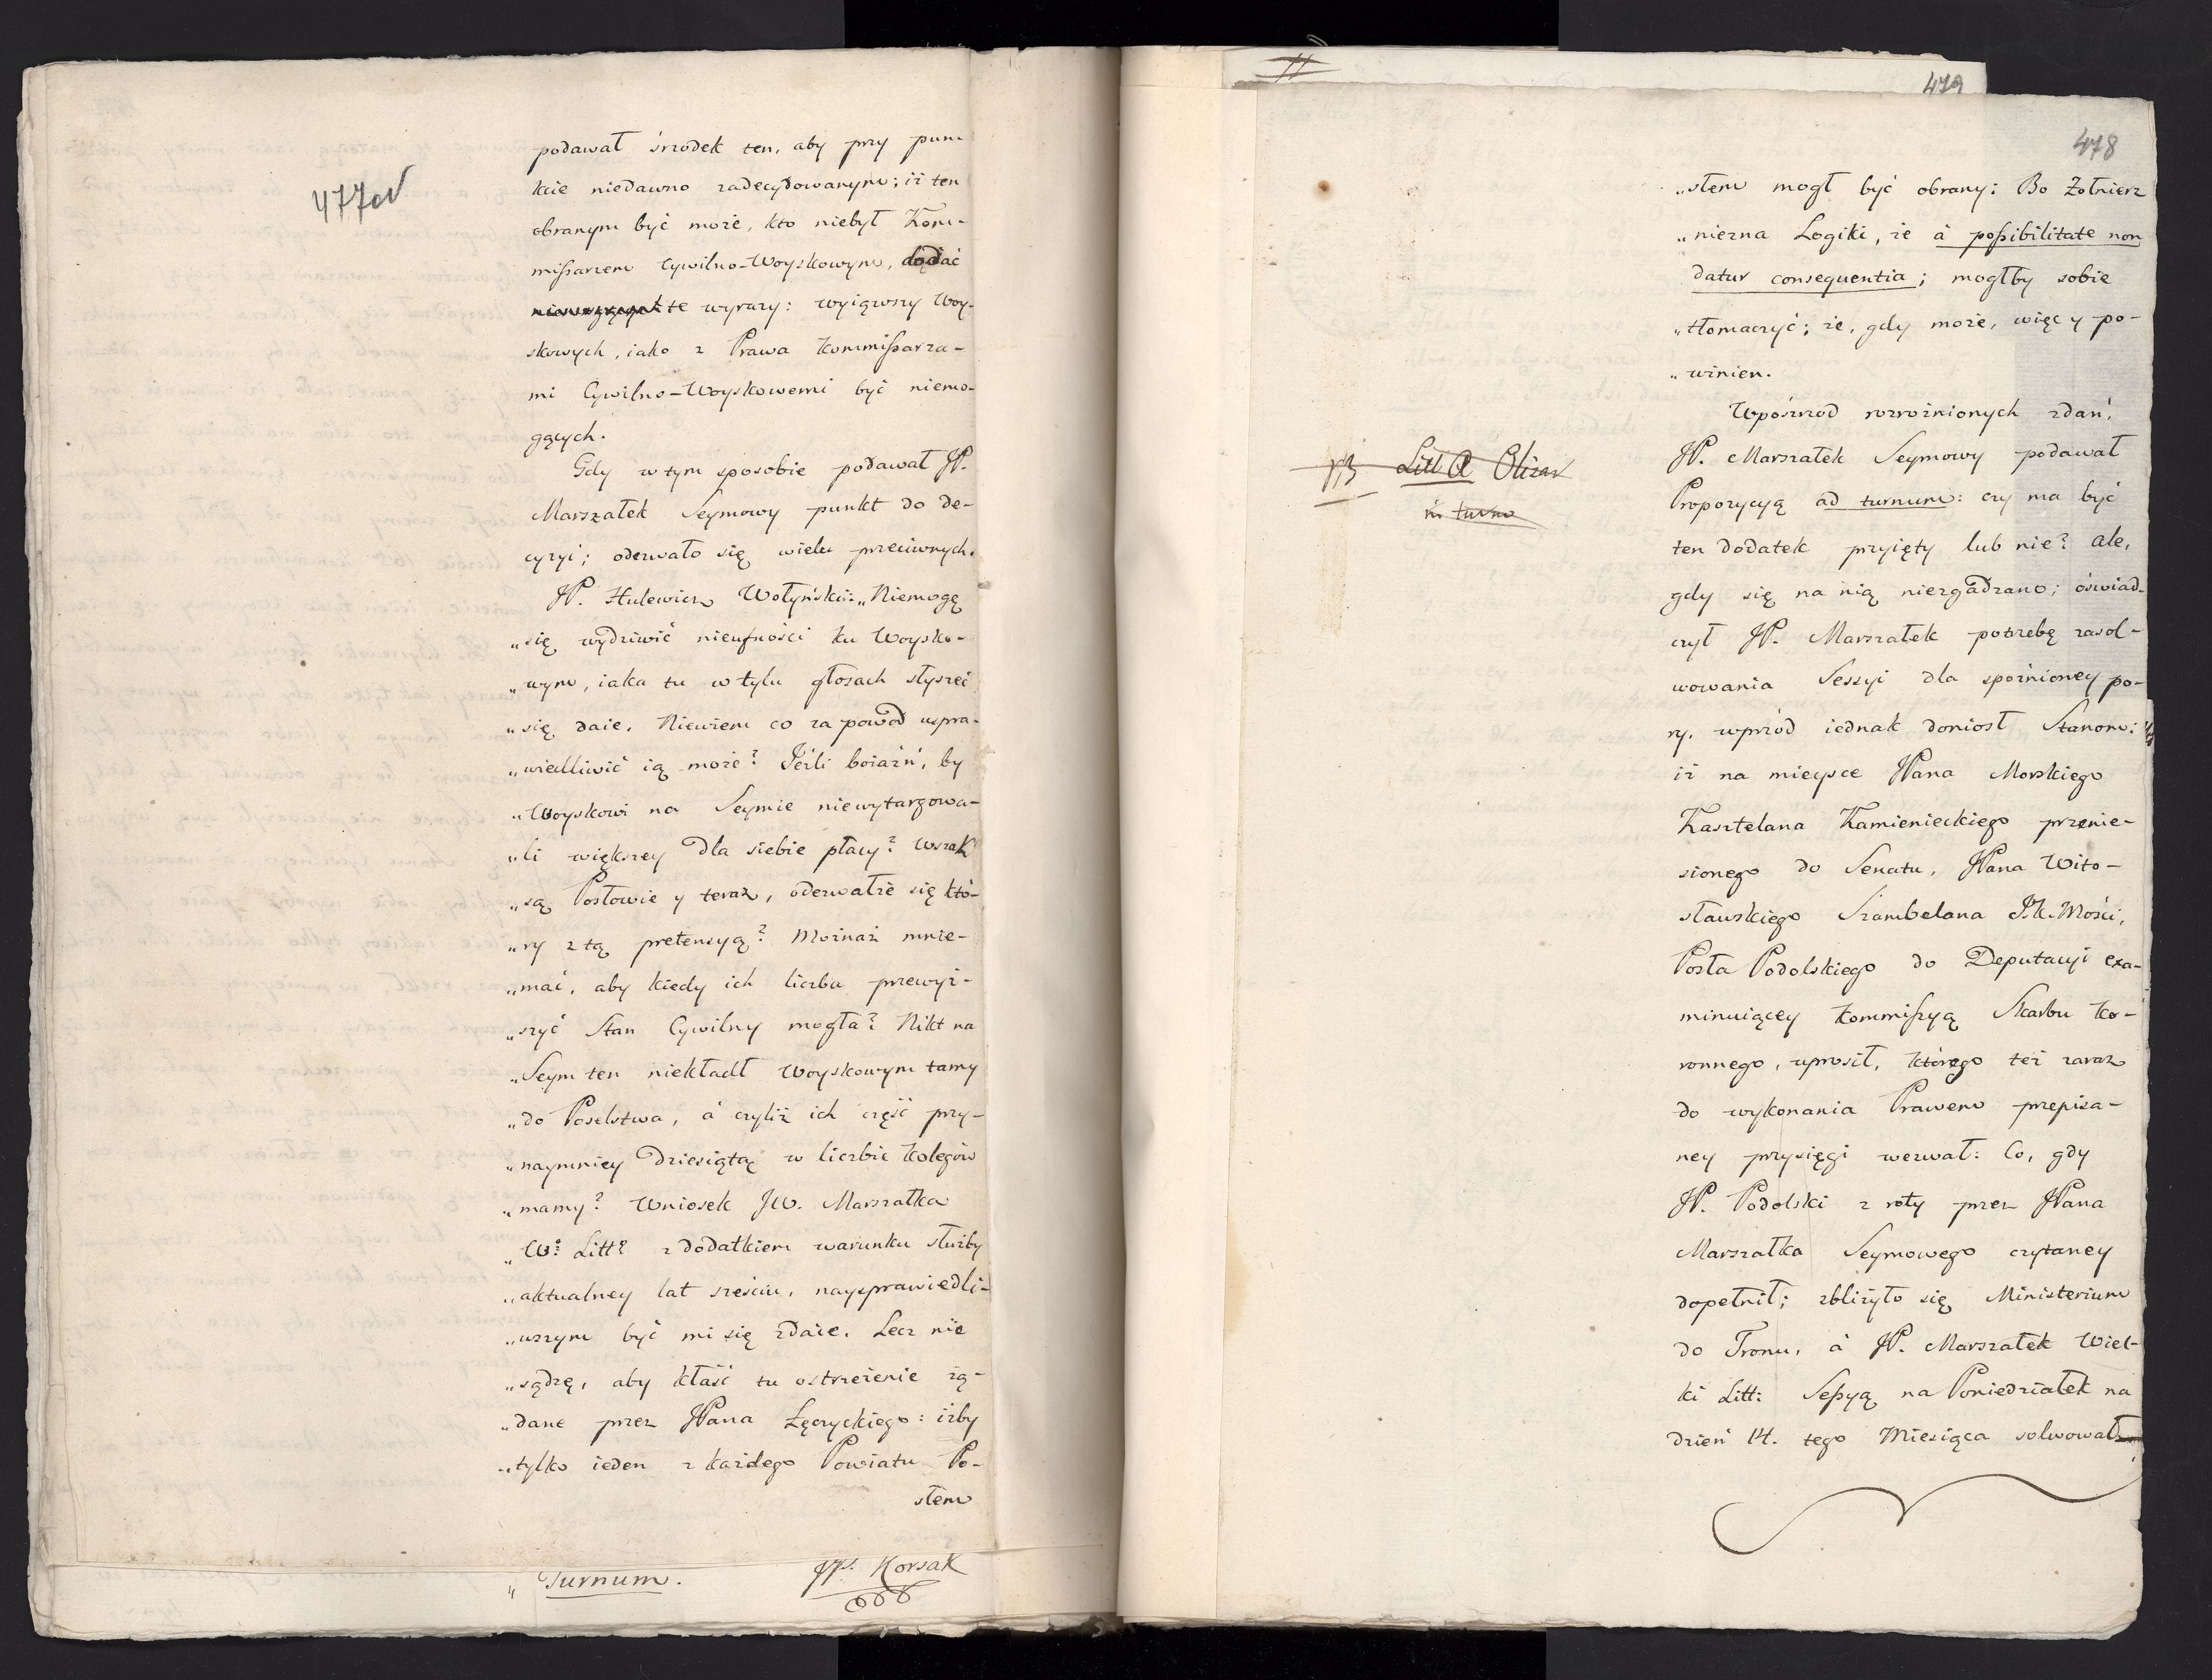 477v
podawał śrzodek ten, aby przy pun-
kcie niedawno zadecydowanym; iż ten
obranym być może, kto niebył Kom-
mißarzem Cywilno-Woyskowym, dodać
te wyrazy: wyiąwszy Woy-
skowych, iako z Prawa Kommißarza-
mi Cywilno-Woyskowemi być niemo-
gących.
Gdy w tym sposobie podawał JP.
Marszałek Seymowy punkt do de-
cyzyi; oderwało się wielu przeciwnych.
JP. Hulewicz Wołyński: „Niemogę
„się wydziwić nieufności ku Woysko-
„wym, iaka tu w tylu głosach słyszeć
„się daie. Niewiem co za powód uspra-
„wiedliwić ią może? Jeśli boiaźń, by
„Woyskowi na Seymie niewytargowa-
„li większey dla siebie płacy? Wszak
„są Posłowie y teraz, oderwałże się któ-
„ry z tą pretensyą? Możnaż mnie-
„mać, aby kiedy ich liczba przewyż-
„szyć Stan Cywilny mogła? Nikt na
„Seym ten niekładł Woyskowym tamy
„do Poselstwa, á czyliż ich część przy-
„naymniey dziesiątą w liczbie Kolegów
„mamy? Wniosek JW. Marszałka
„W? Litt? z dodatkiem warunku służby
„aktualney lat sześciu, naysprawiedli-
„wszym być mi się zdaie. Lecz nie
„sądzę, aby kłaść tu ostrzeżenie żą-
„dane przez JPana Łęczyckiego: iżby
„tylko ieden z każdego Powiatu Po-
słem
„Turnum. JP. Korsak
479
478
„słem mogł być obrany: Bo Żołnierz
„niezna Logiki, że á poßibilitate non
datur consequentia; mogłby sobie
„tłomaczyć; że, gdy może, więc y po-
„winien.
Wpośrzod rozrożnionych zdań,
JP. Marszałek Seymowy podawał
Propozycyą ad turnum: czy ma być
ten dodatek przyięty lub nie? ale,
gdy się na nią niezgadzano; oświad-
czył JP. Marszałek potrzebę zasol-
wowania Sessyi dla spoźnioney po-
ry, wprzód iednak doniosł Stanom:
iż na mieysce JPana Morskiego
Kasztelana Kamienieckiego przenie-
sionego do Senatu, JPana Wito-
sławskiego Szambelana J.K.Mości,
Posła Podolskiego do Deputacyi exa-
minuiącey Kommißyą Skarbu Ko-
ronnego, uprosił, którego też zaraz
do wykonania Prawem przepisa-
ney przysięgi wezwał: Co, gdy
JP. Podolski z roty przez JPana
Marszałka Seymowego czytaney
dopełnił; zbliżyło się Ministerium
do Tronu, á JP. Marszałek Wiel-
ki Litt: Seßyą na Poniedziałek na
dzień 14. tego Miesiąca solwował
Litt A Olizar
in turno